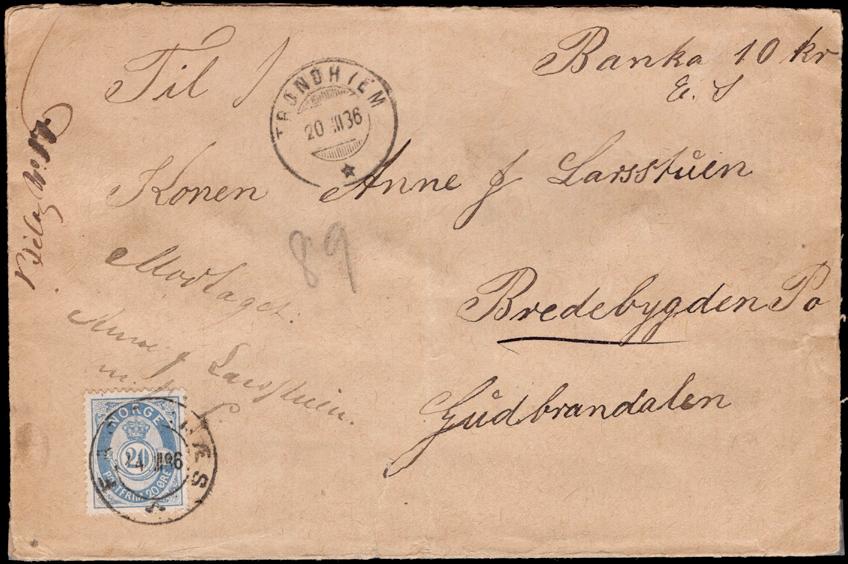 Til
Banka 10 kr
E. S
TRONDHJEM
20 III 36
Konen Anne J Larsstuen
89
Modtaget.
Anne J Larsstuen.
Bredebygden Po
Gudbrandalen
Bilag No 17
NORGE
20
POSTFRIM. 20 ØRE
NÆS